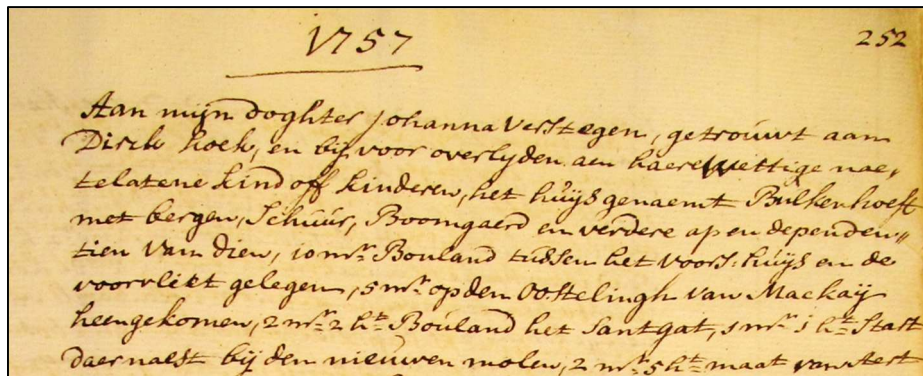 1757
252
Aan mijn doghter Johanna Verstegen, getrouwt aan
Dirck hoek, en bij voor overlyden aen haere wettige nae„
telatene kind off kinderen, het huijs genaemt Bulkenhoeft
met bergen, Schuúr, Boomgaerd en verdere ap en dependen„
tien van dien, 10 mr. Bouland tússen het voors: huijs en de
voorvliet gelegen, 5 mr. op den Oostelingh van Mackaij
heengekomen, 2 mr. 2 ht. Boúland het Santgat, 1 mr. 1 ht.
daernaest bij den nieuwen molen, 2 mr. 5 ht. maat van